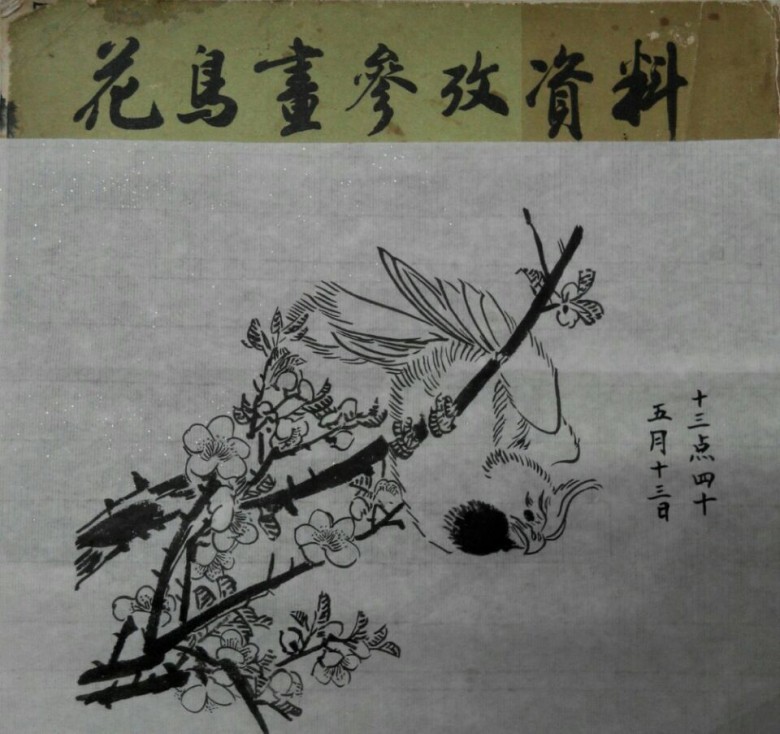 花鳥畫參攷資料
十三点四十
五月十三日